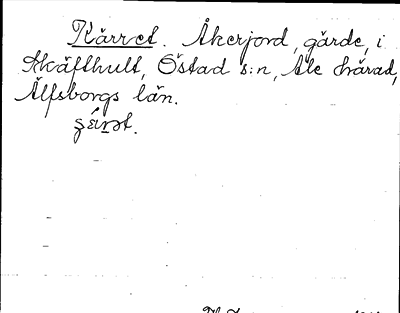 Kärret. Åkerjord, gärde, i
Skäfthult, Östad s:n, Ale härad,
Älfsborgs län.